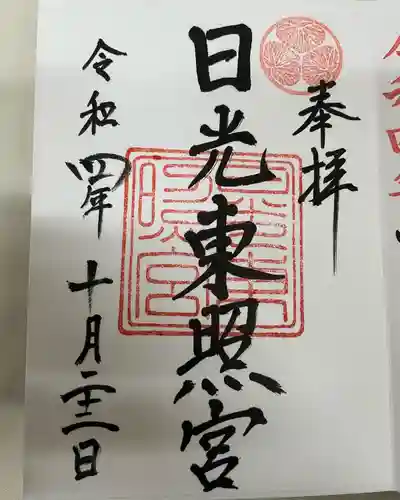 奉拝
日光東照宮
令和四年十月二十二日